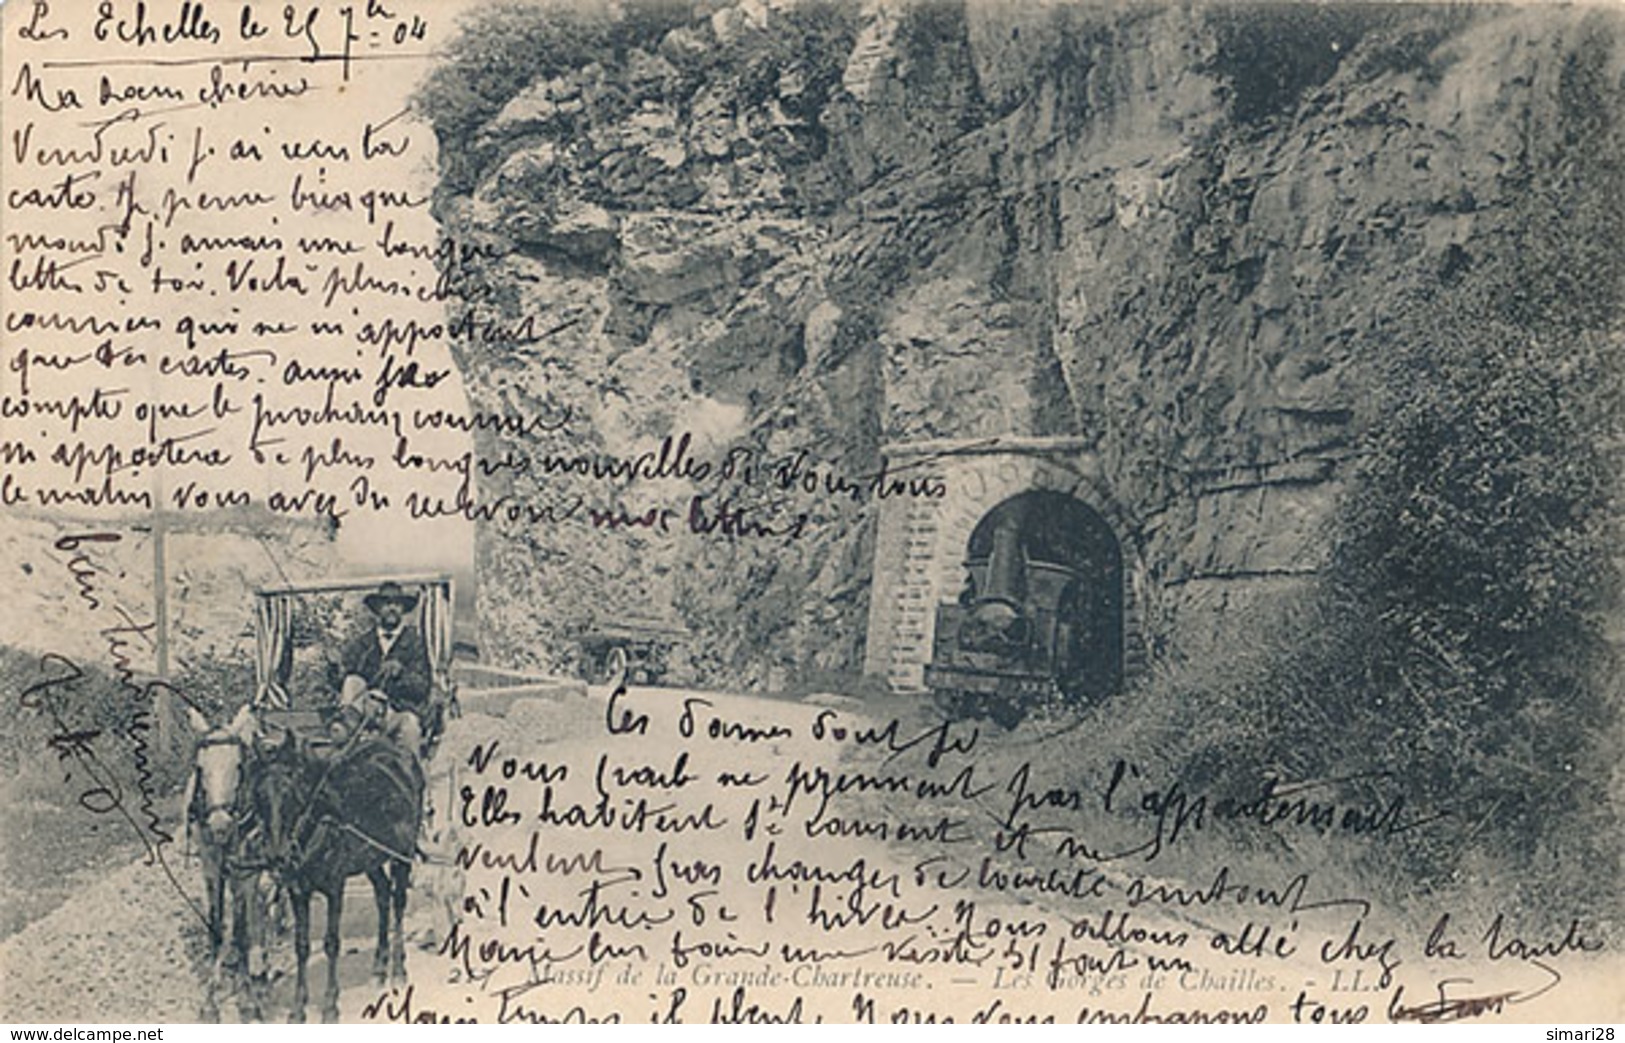 Les Echelles le 25 7bre 04
Ma chérie
Vendredi j'ai reçu ta
carte. Je pense bien que
mardi j'aurais une longue
lettre de toi. Voilà plusieurs
courriers qui ne m'apportent
que des cartes. aussi je
compte que le prochain courrier
m'apportera de plus longues nouvelles de vous tous
Ce matin vous avez du recevoir mes lettres
bien tendrement
Ces dames dont je
vous parle ne prennent pas l'appartement
Elles habitent St Laurent et ne
veulent pas changer de localité surtout
à l'entrée de l'hiver. Nous allons allé chez la tante
Marie leur faire une visite Il fait un
217 Massif de la Grande-Chartreuse. — Les Gorges de Chailles. - LL.
vilain temps il pleut. Nous vous embrassons tous
www.delcampe.net
simari28